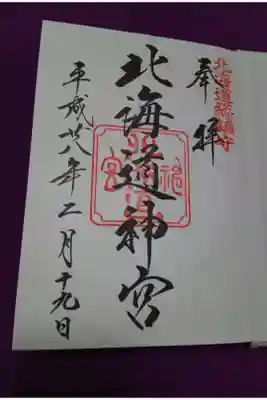 北海道総鎮守
奉拝
北海道神宮
平成廿八年二月十九日